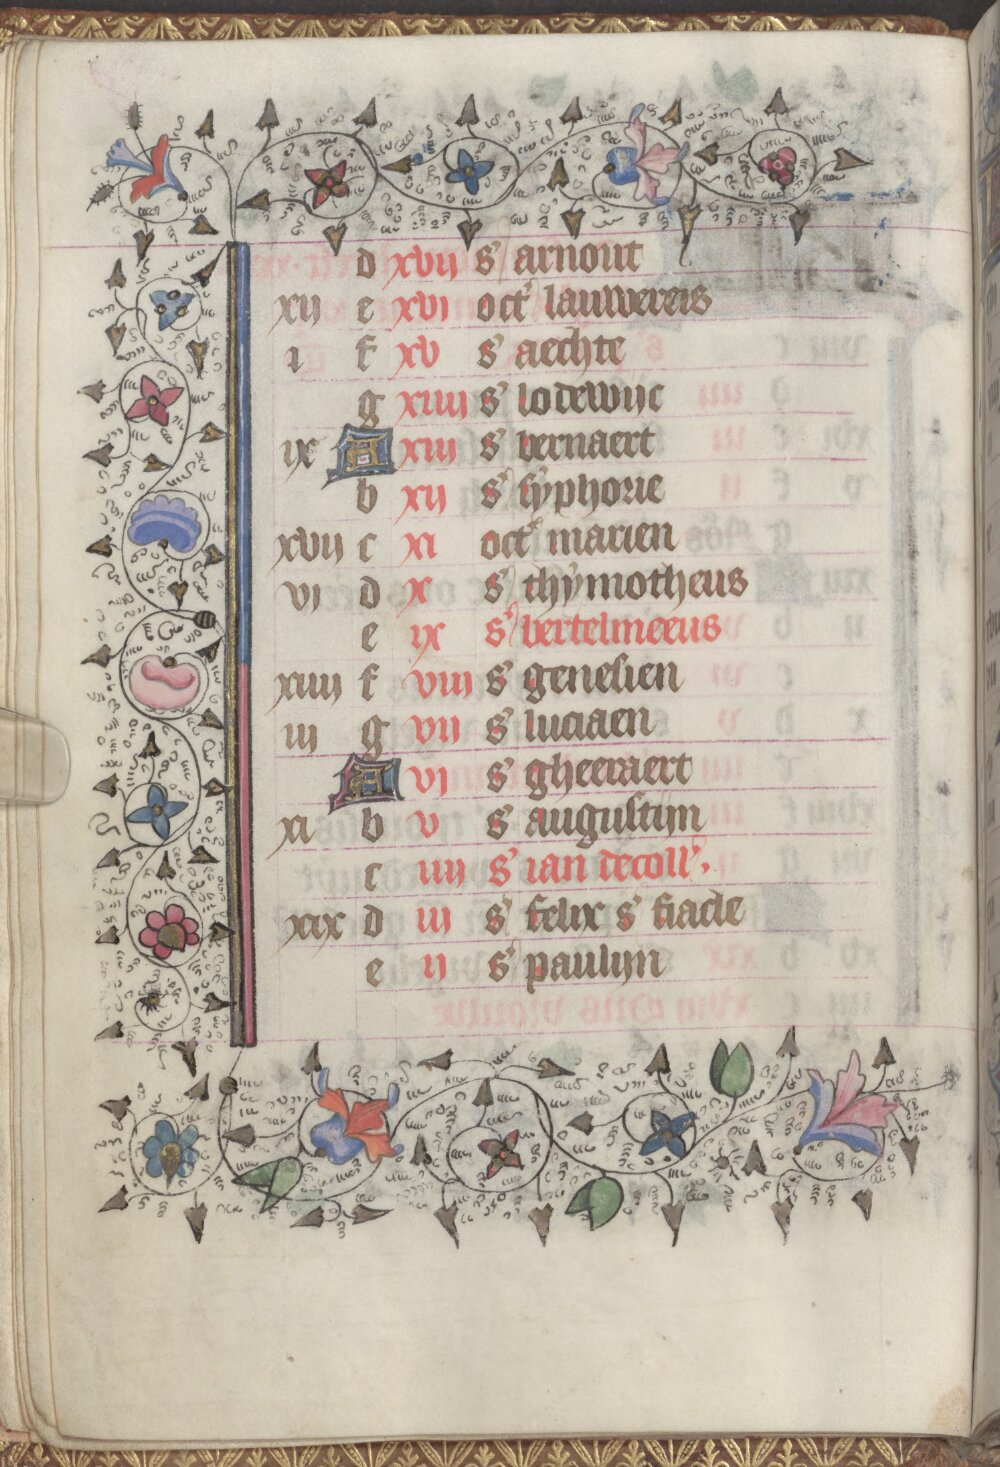 d xvij s' arnout
xij e xvi oct' lauwereis
i f xv s' aechte
g xiiij s' lodewijc
ix A xiij s' bernaert
b xij s' syphorie
xvij c xi oct' marien
vi d x s' thymotheus
e ix s' bertelmeeus
xiiij f viij s' genesien
iij g vij s' luciaen
A vi s' gheeraert
xi b v s' augustijn
c iiij s' ian decoll'.
xix d iij s' felix s' fiacle
e ij s' paulijn